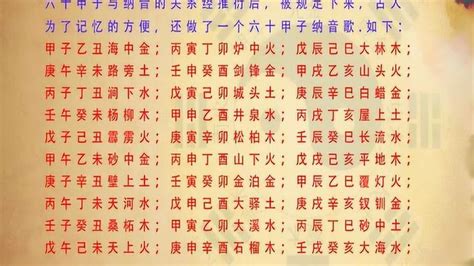 六十甲子与纳音的关系经推衍后，被规定下来，古人
为了记忆的方便，还做了一个六十甲子纳音歌.如下：
甲子乙丑海中金；丙寅丁卯炉中火；戊辰己巳大林木；
庚午辛未路旁土；壬申癸酉剑锋金；甲戌乙亥山头火；
丙子丁丑涧下水；戊寅己卯城头土；庚辰辛巳白蜡金；
壬午癸未杨柳木；甲申乙酉井泉水；丙戌丁亥屋上土；
戊子己丑霹雳火；庚寅辛卯松柏木；壬辰癸巳长流水；
甲午乙未砂中金；丙申丁酉山下火；戊戌己亥平地木；
庚子辛丑壁上土；壬寅癸卯金泊金；甲辰乙巳覆灯火；
丙午丁未天河水；戊申己酉大驿土；庚戌辛亥钗钏金；
壬子癸丑桑柘木；甲寅乙卯大溪水；丙辰丁巳砂中土；
戊午己未天上火；庚申辛酉石榴木；壬戌癸亥大海水；